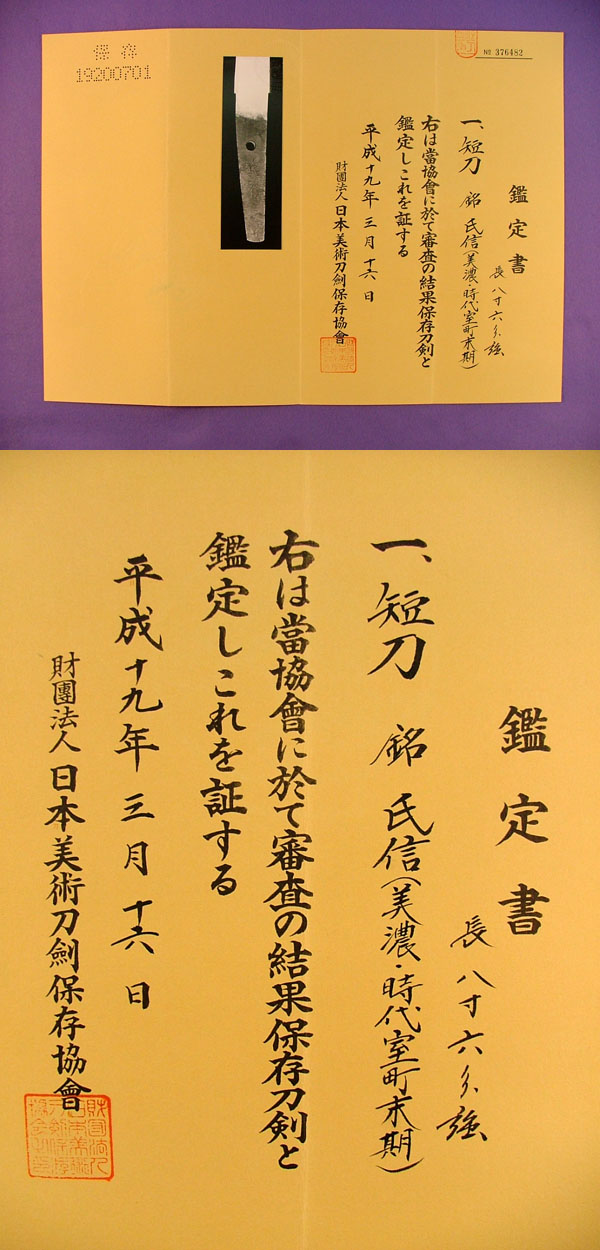 保存
19200701
No 376482
鑑定書
一、短刀 銘 氏信(美濃・時代室町末期)
長八寸六分強
右は當協會に於て審査の結果保存刀剣と
鑑定しこれを証する
平成十九年三月十六日
財團法人日本美術刀劍保存協會
鑑定書
一、短刀 銘 氏信(美濃・時代室町末期)
長八寸六分強
右は當協會に於て審査の結果保存刀剣と
鑑定しこれを証する
平成十九年三月十六日
財團法人日本美術刀劍保存協會